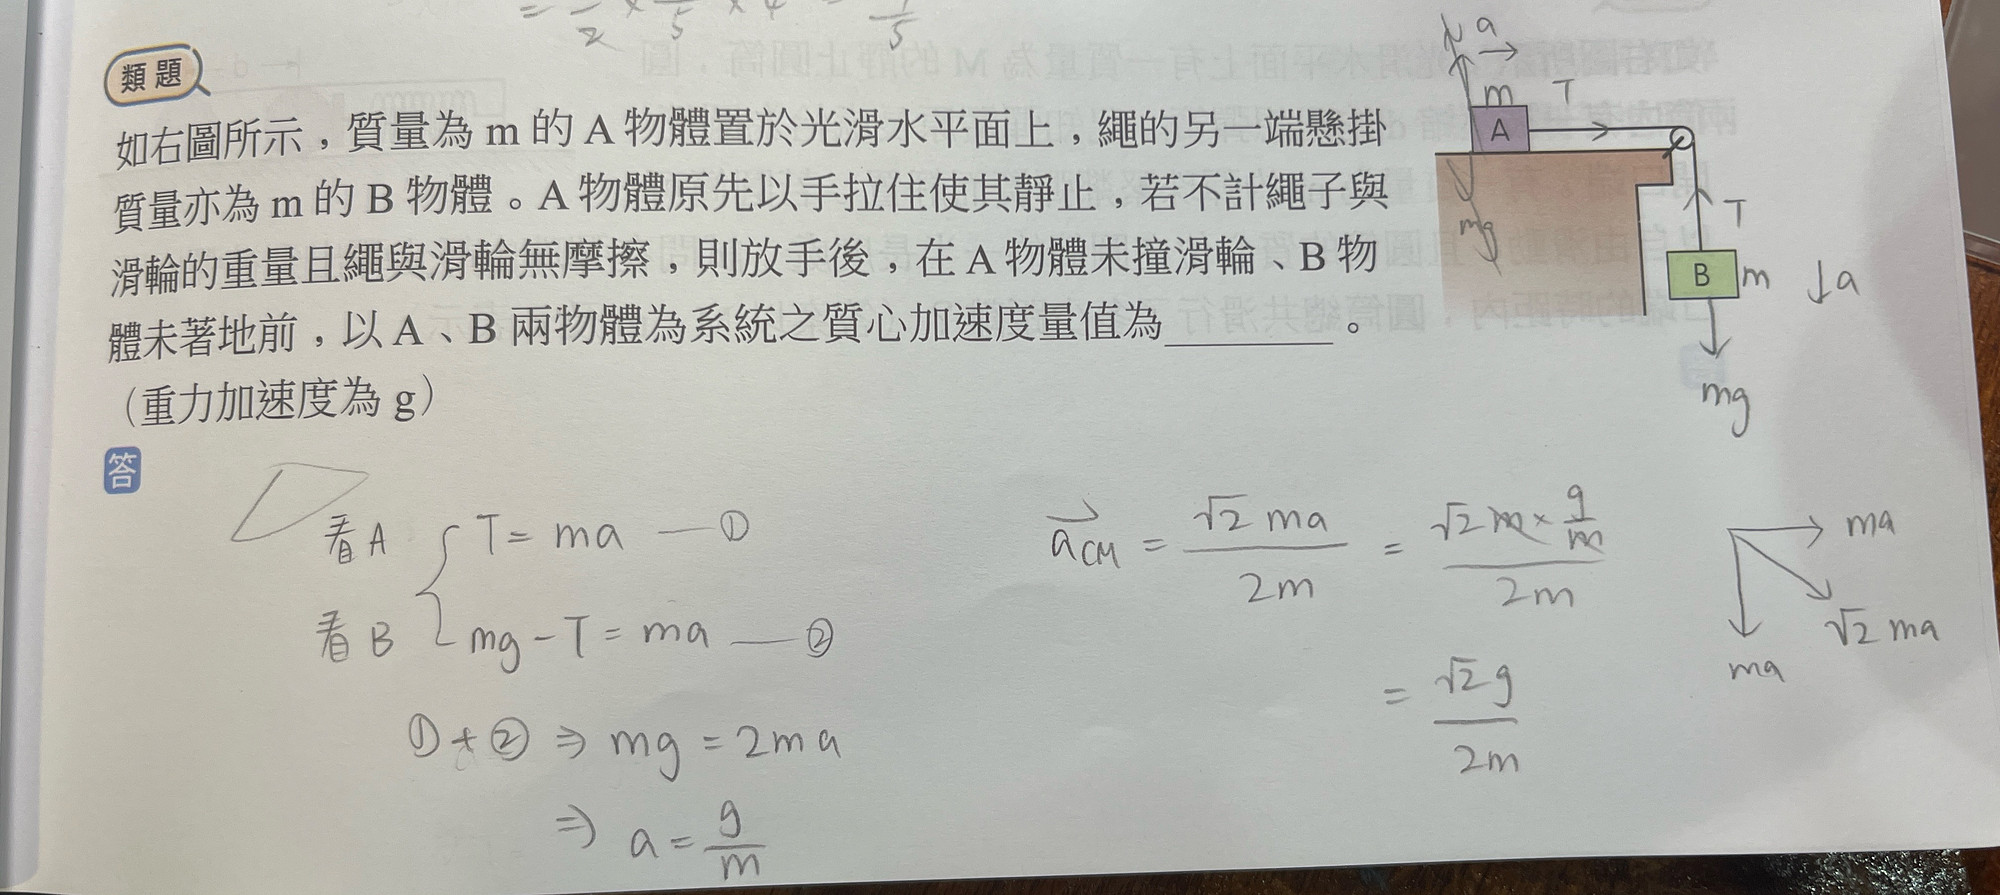 = 1/2 × /5 × 4 = 1/5
類題
如右圖所示，質量為 m 的 A 物體置於光滑水平面上，繩的另一端懸掛
質量亦為 m 的 B 物體。A 物體原先以手拉住使其靜止，若不計繩子與
滑輪的重量且繩與滑輪無摩擦，則放手後，在 A 物體未撞滑輪、B 物
體未著地前，以 A、B 兩物體為系統之質心加速度量值為________。
（重力加速度為 g）
a
m
T
A
mg
T
B
m
a
mg
答
看A T = ma — ①
看B mg − T = ma — ②
① + ② ⇒ mg = 2ma
⇒ a = g/m
a⃗CM = √2 ma / 2m = √2 m × g/m / 2m
= √2 g / 2m
ma
√2 ma
ma